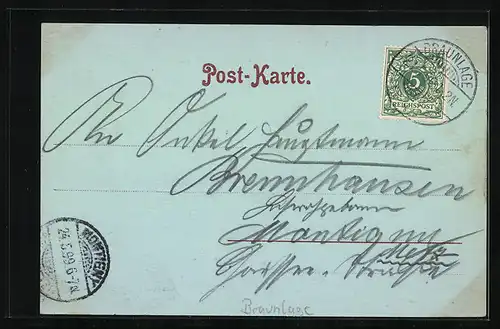 BRAUNLAGE
5
REICHSPOST
Post-Karte.
An Onkel Hauptmann
Brennhausen
Montigny
Metz
Strasse
MONTIGNY
24.5.99.6-7N.
Braunlage